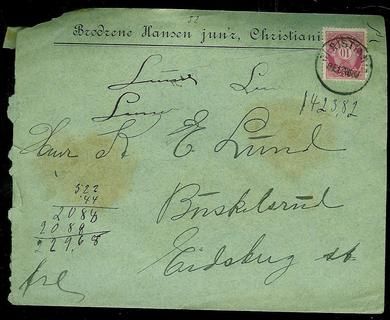 52
Brødrene Hansen jun'r, Christiania
10
Lund Lun
Lunn
1423,82
Herr K E Lund
Buskelsrud
Eidsberg st.
522
44
2088
2088
229,68